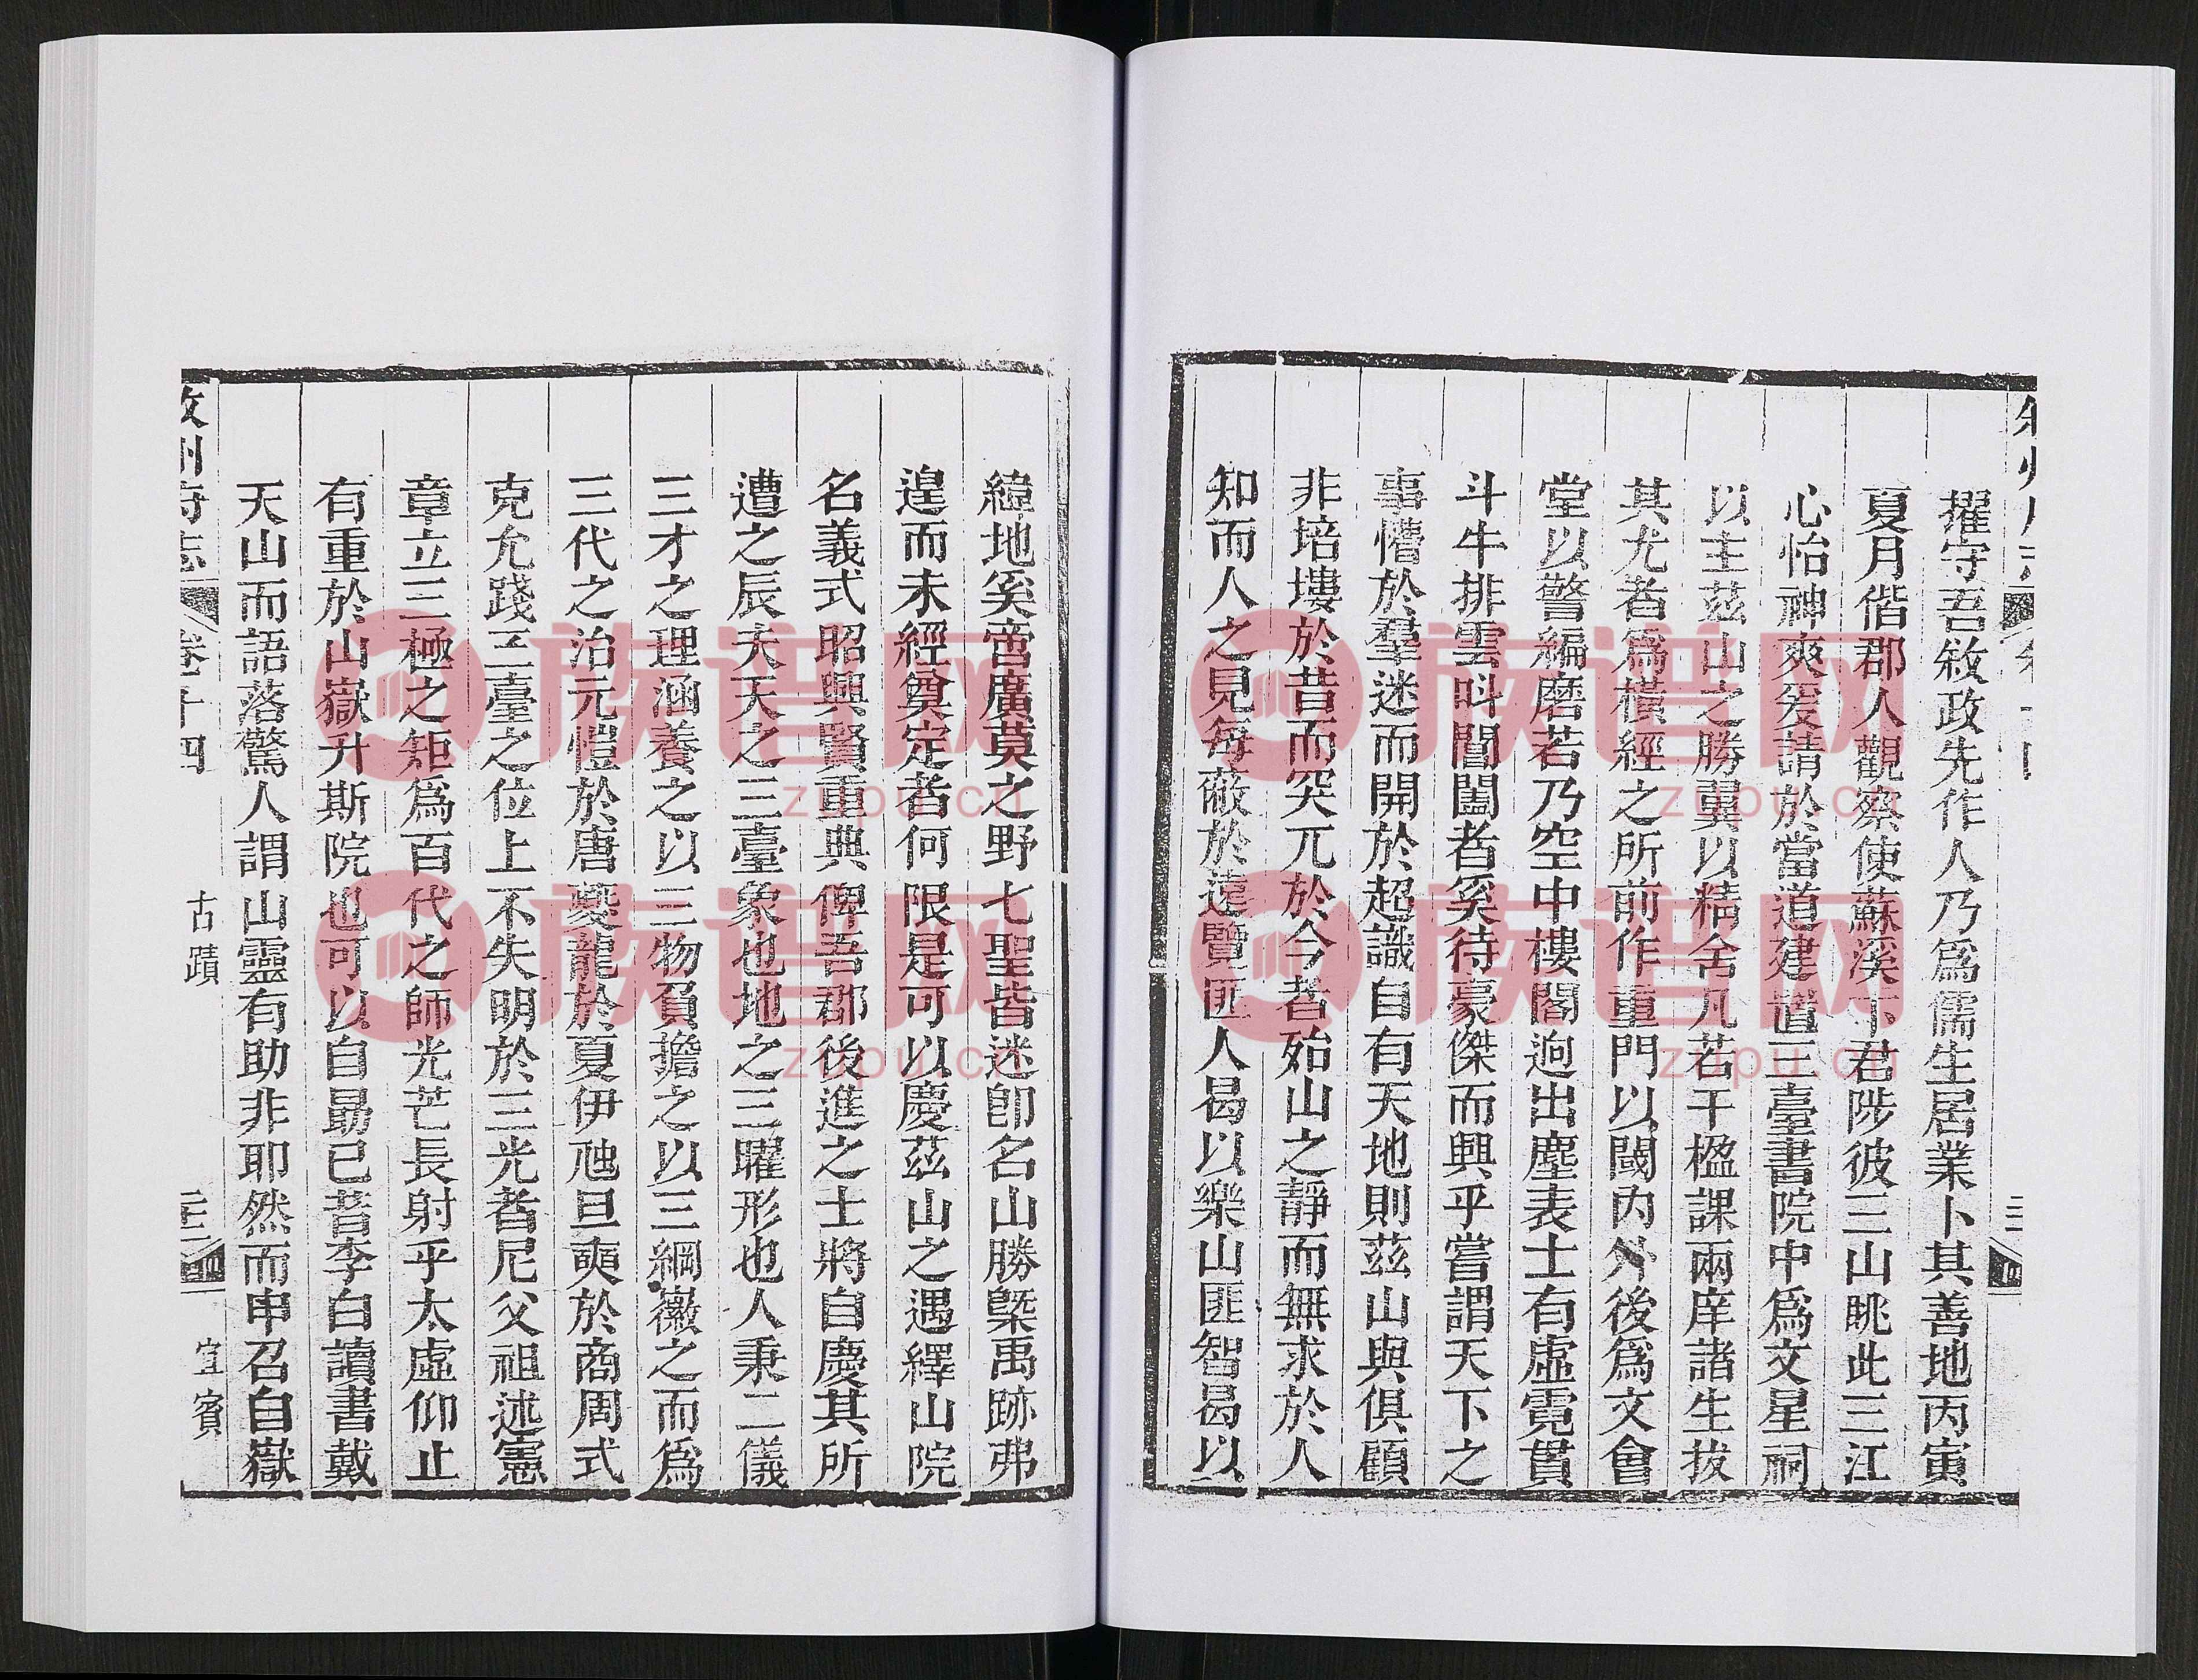 擢守吾敘政先作人乃爲儒生居業卜其善地丙寅
夏月偕郡人觀察使蘇溪下君陟彼三山眺此三江
心怡神爽爰請於當道建置三臺書院中爲文星祠
以主茲山之勝翼以精舍凡若干楹課兩庠諸生拔
其尤者爲橫經之所前作重門以閾內外後爲文會
堂以警編磨若乃空中樓閣迥出塵表士有虛霓貫
斗牛排雲呌閶闔者奚待豪傑而興乎嘗謂天下之
事懵於羣迷而開於超識自有天地則茲山與俱顧
非培塿於昔而突兀於今者殆山之靜而無求於人
知而人之見每蔽於遠覽匪人曷以樂山匪智曷以
緯地奚啻廣莫之野七聖皆迷卽名山勝槩禹跡弗
遑而未經奠定者何限是可以慶茲山之遇繹山院
名義式昭興賢重典俾吾郡後進之士將自慶其所
遭之辰夫天之三臺象也地之三曜形也人秉二儀
三才之理涵養之以三物負擔之以三綱嶶之而爲
三代之治元愷於唐夔龍於夏伊虺旦奭於商周式
克允踐三臺之位上不失明於三光者尼父祖述憲
章立三極之矩爲百代之師光芒長射乎太虛仰止
有重於山嶽升斯院也可以自勗已昔李白讀書戴
天山而語落驚人謂山靈有助非耶然而申召自嶽
敘州府志
卷十四
古蹟
宜賓
族譜网
zupu.cn
族譜网
zupu.cn
族譜网
zupu.cn
族譜网
zupu.cn